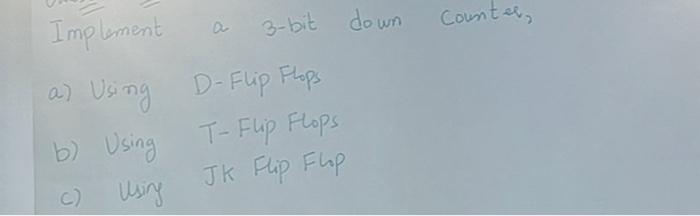 Implement a 3-bit down Counter,
a) Using D-Flip Flops
b) Using T-Flip Flops
c) Using JK Flip Flop